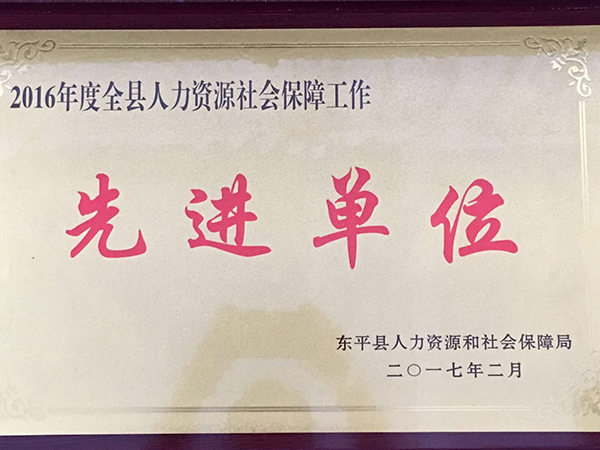 2016年度全县人力资源社会保障工作
先进单位
东平县人力资源和社会保障局
二〇一七年二月